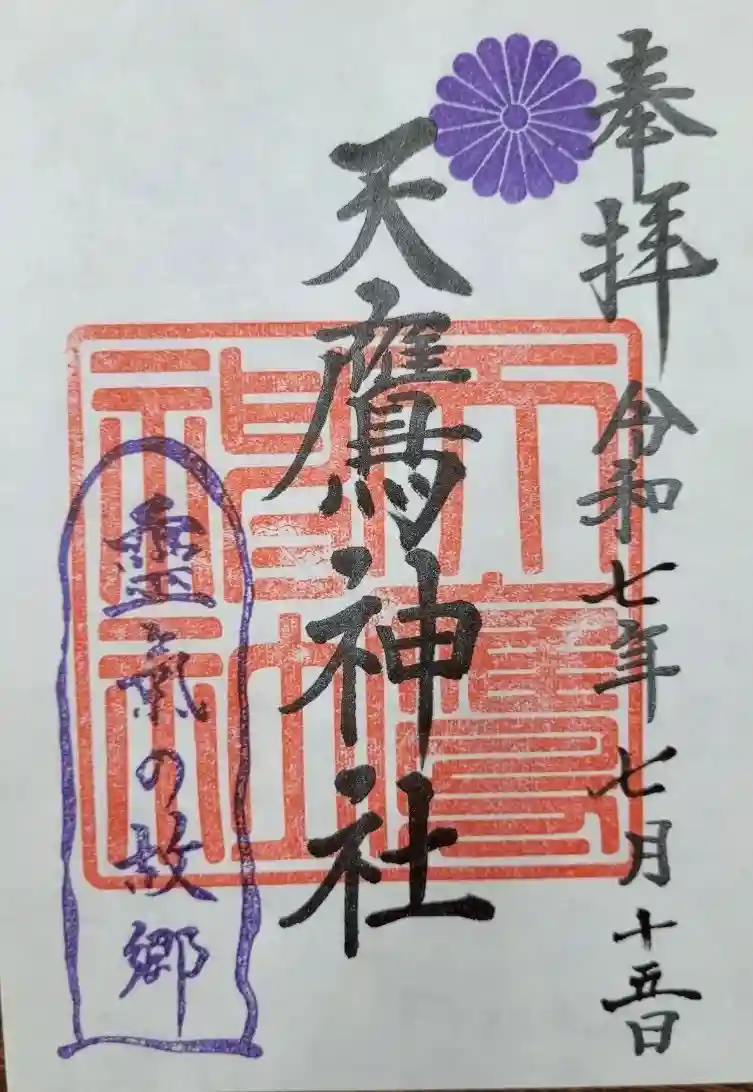 奉拝 令和七年七月十五日
天鷹神社
天鷹神社
靈氣の故郷